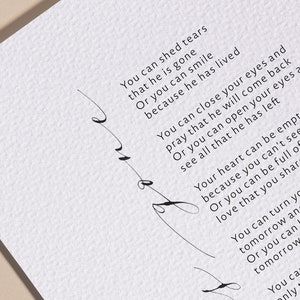 You can shed tears
that he is gone
Or you can smile
because he has lived
You can close your eyes and
pray that he will come back
Or you can open your eyes a
see all that he has left
Your heart can be empt
because you can't see
Or you can be full of
love that you sha
You can turn y
tomorrow an
Or you can
tomorrow
You ca